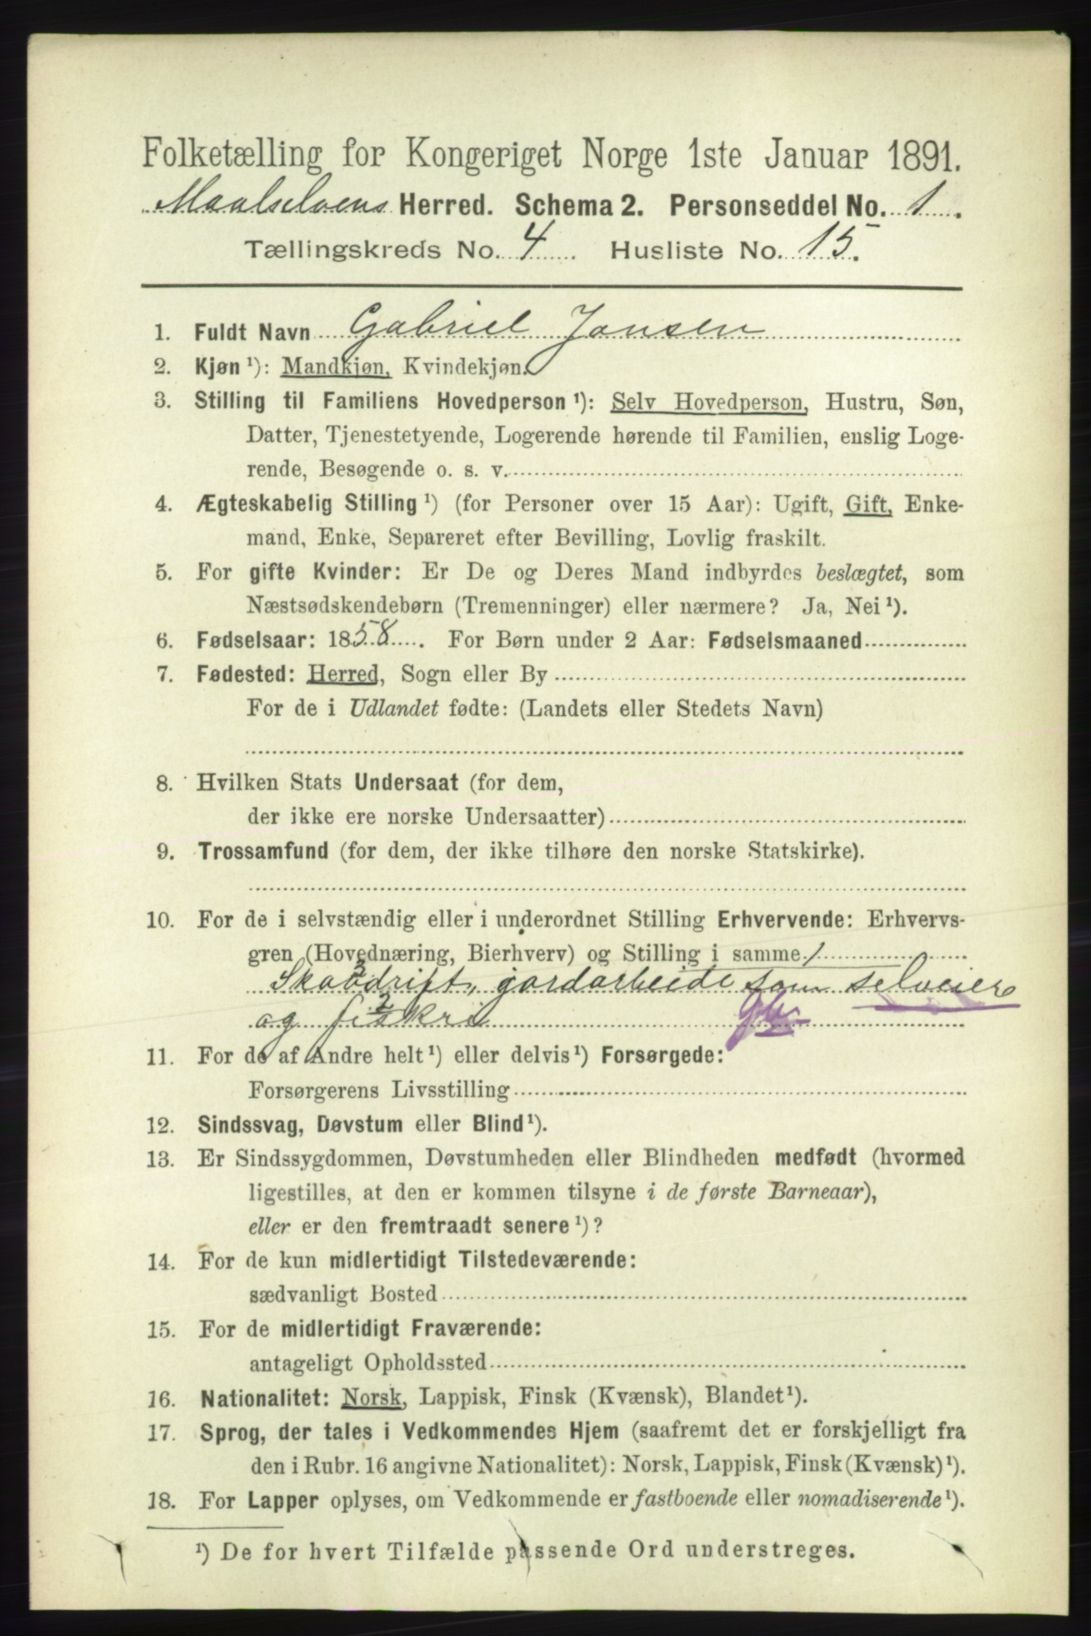 Folketælling for Kongeriget Norge 1ste Januar 1891.
Maalselvens Herred. Schema 2. Personseddel No. 1.
Tællingskreds No. 4. Husliste No. 15.
1. Fuldt Navn Gabriel Jansen
2. Kjøn ¹): Mandkjøn, Kvindekjøn.
3. Stilling til Familiens Hovedperson ¹): Selv Hovedperson, Hustru, Søn,
Datter, Tjenestetyende, Logerende hørende til Familien, enslig Loge-
rende, Besøgende o. s. v.
4. Ægteskabelig Stilling ¹) (for Personer over 15 Aar): Ugift, Gift, Enke-
mand, Enke, Separeret efter Bevilling, Lovlig fraskilt.
5. For gifte Kvinder: Er De og Deres Mand indbyrdes beslægtet, som
Næstsødskendebørn (Tremenninger) eller nærmere? Ja, Nei ¹).
6. Fødselsaar: 1858. For Børn under 2 Aar: Fødselsmaaned
7. Fødested: Herred, Sogn eller By
For de i Udlandet fødte: (Landets eller Stedets Navn)
8. Hvilken Stats Undersaat (for dem,
der ikke ere norske Undersaatter)
9. Trossamfund (for dem, der ikke tilhøre den norske Statskirke).
10. For de i selvstændig eller i underordnet Stilling Erhvervende: Erhvervs-
gren (Hovednæring, Bierhverv) og Stilling i samme 1
3
Skovdrift, jordarbeide som selveier
2
og fiskeri
11. For de af Andre helt ¹) eller delvis ¹) Forsørgede:
Forsørgerens Livsstilling
12. Sindssvag, Døvstum eller Blind ¹).
13. Er Sindssygdommen, Døvstumheden eller Blindheden medfødt (hvormed
ligestilles, at den er kommen tilsyne i de første Barneaar),
eller er den fremtraadt senere ¹)?
14. For de kun midlertidigt Tilstedeværende:
sædvanligt Bosted
15. For de midlertidigt Fraværende:
antageligt Opholdssted
16. Nationalitet: Norsk, Lappisk, Finsk (Kvænsk), Blandet ¹).
17. Sprog, der tales i Vedkommendes Hjem (saafremt det er forskjelligt fra
den i Rubr. 16 angivne Nationalitet): Norsk, Lappisk, Finsk (Kvænsk) ¹).
18. For Lapper oplyses, om Vedkommende er fastboende eller nomadiserende ¹).
¹) De for hvert Tilfælde passende Ord understreges.